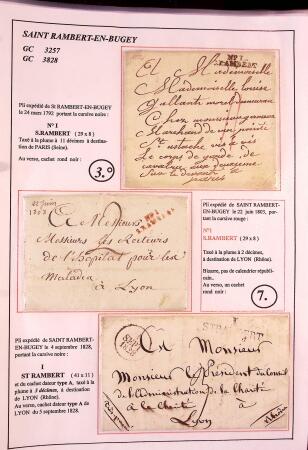 SAINT RAMBERT-EN-BUGEY
GC 3257
GC 3828
Pli expédié de St RAMBERT-EN-BUGEY
le 24 mars 1792 portant la cursive noire :
N° 1
S.RAMBERT (29 x 8)
Taxé à la plume à 11 décimes à destina-
tion de PARIS (Seine).
Au verso, cachet rond noir :
3.°
N° 1
S.RAMBERT
A Mademoiselle
Mademoiselle
Chez
Marchand de vin
St eustache vis à vis
Le corps de garde, de
22 juin
1803
A Messieurs
Messieurs les Recteurs
de l'hôpital pour les
Malades
à Lyon
Pli expédié de SAINT RAMBERT-
EN-BUGEY le 22 juin 1803, portant
la cursive rouge :
N°1
S.RAMBERT (29 x 8)
Taxé à la plume à 2 décimes,
à destination de LYON (Rhône).
Bizarre, pas de calendrier républi-
cain.
Au verso, un cachet
rond noir :
7.
Pli expédié de SAINT RAMBERT-
EN-BUGEY le 4 septembre 1828,
portant la cursive noire :
1
ST RAMBERT (41 x 11)
et du cachet dateur type A, taxé à la
plume à 3 décimes, à destination
de LYON (Rhône).
Au verso, cachet dateur type A de
LYON du 5 septembre 1828.
1
ST RAMBERT
A Monsieur
Monsieur le Président du Conseil
de l'Administration de la Charité
à la Charité
Lyon